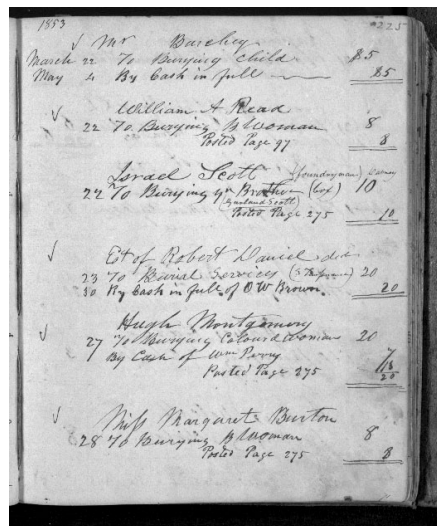 1853 225
Mr Buschey
March 22 To Burying child $5
May 4 By Cash in full $5
William A Read
22 To Burying B Woman 8
Posted Page 97 8
Israel Scott (foundryman)
22 To Burying yr Brother (box) 10
Posted Page 275 10
Est of Robert Daniel decd
23 To Burial Services 20
30 By Cash in full of O W Brown 20
Hugh Montgomery
27 To Burying Coloured woman 20
By Cash of Wm Perry 7
Posted Page 275 13
20
Miss Margarete Burton
28 To Burying B Woman 8
Posted Page 275 8